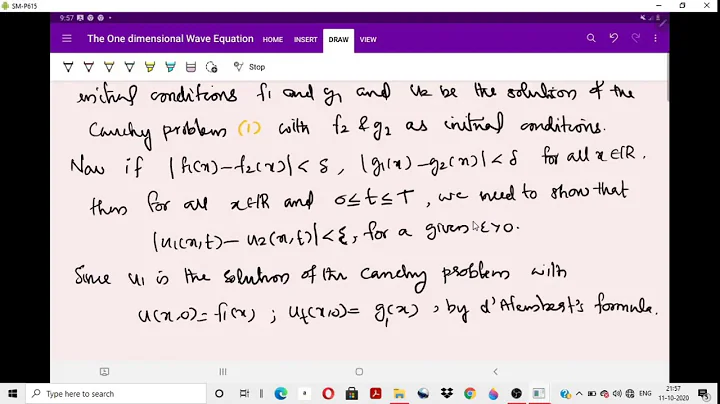 SM-P615
9:57
The One dimensional Wave Equation HOME INSERT DRAW VIEW
Stop
initial conditions f1 and g1 and u2 be the solution of the
Cauchy problem (1) with f2 & g2 as initial conditions.
Now if |f1(x)-f2(x)| < δ, |g1(x)-g2(x)| < δ for all x∈ℝ.
then for all x∈ℝ and 0≤t≤T, we need to show that
|u1(x,t) - u2(x,t)| < ε, for a given ε>0.
Since u1 is the solution of the Cauchy problem with
u(x,0)= f1(x) ; ut(x,0)= g1(x), by d'Alembert's formula.
Type here to search
ENG
21:57
11-10-2020